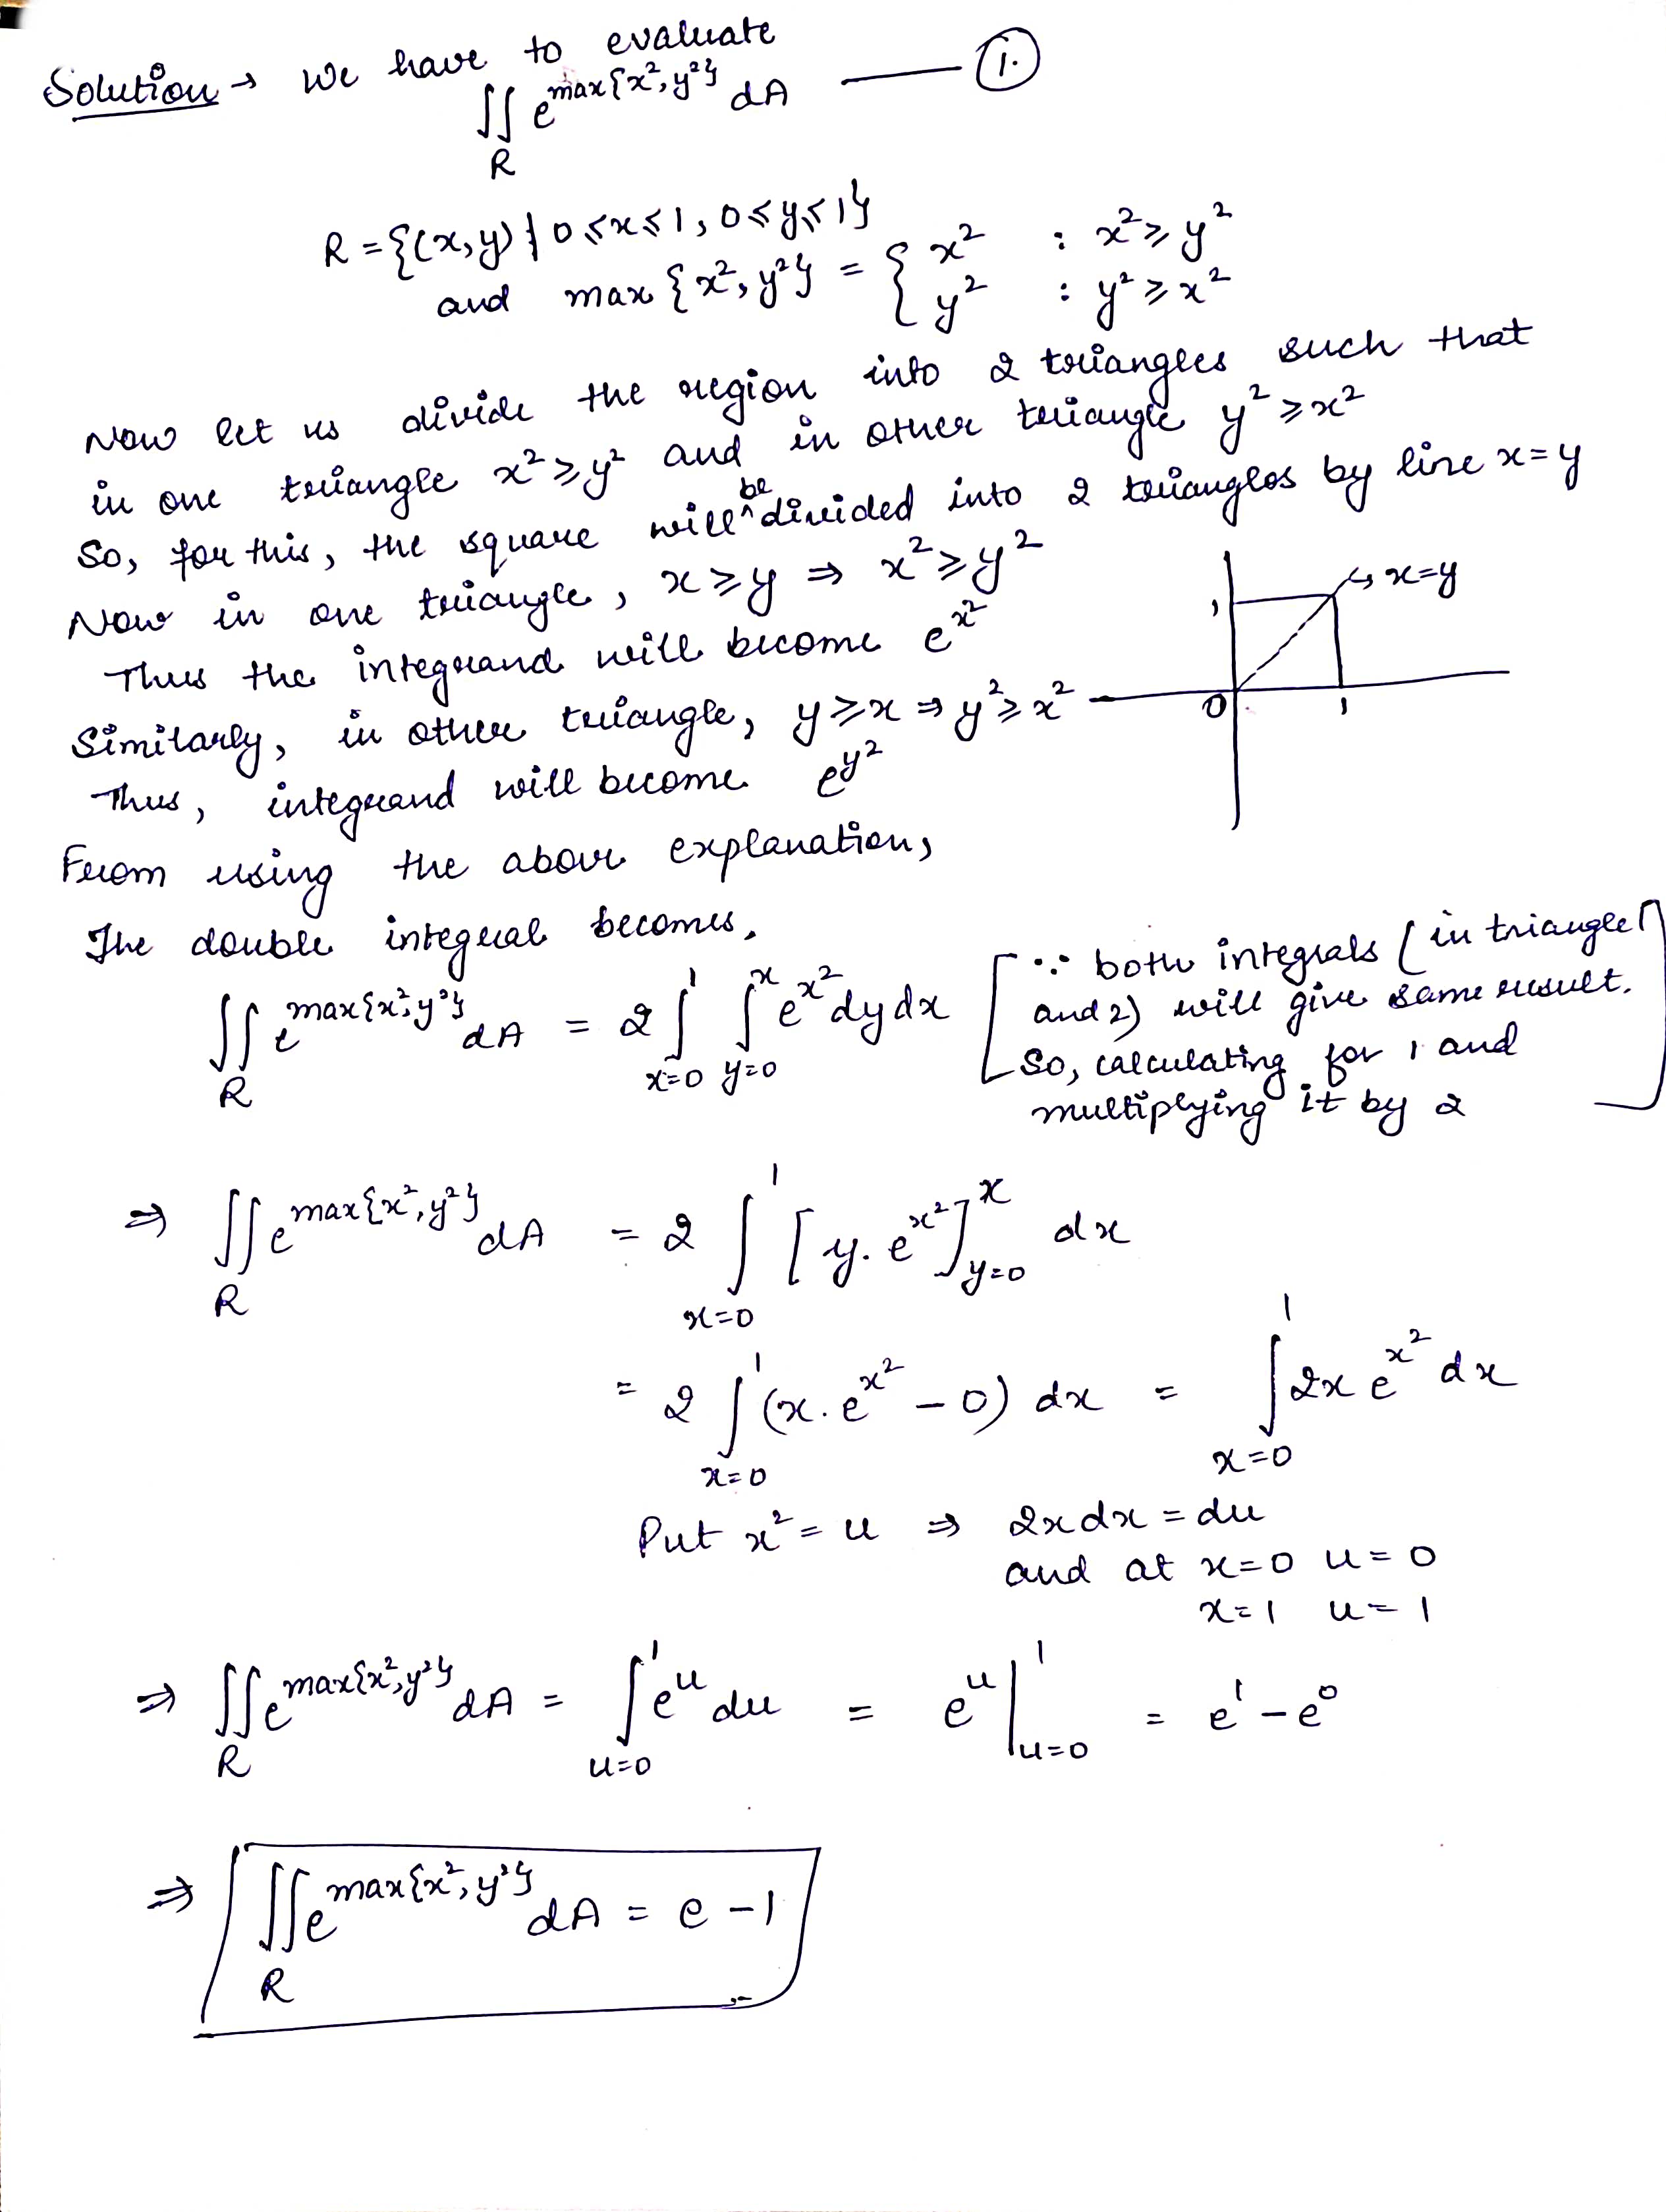 Solution → We have to evaluate
∬_R e^{max{x², y²}} dA —— (1.)
R = {(x,y) | 0 ≤ x ≤ 1, 0 ≤ y ≤ 1}
and max {x², y²} = { x² : x² ≥ y²
y² : y² ≥ x²
Now let us divide the region into 2 triangles such that
in one triangle x² ≥ y² and in other triangle y² ≥ x²
So, for this, the square will be divided into 2 triangles by line x=y
Now in one triangle, x ≥ y ⇒ x² ≥ y²
Thus the integrand will become e^{x²}
Similarly, in other triangle, y ≥ x ⇒ y² ≥ x²
Thus, integrand will become e^{y²}
x=y
1
0
1
From using the above explanation,
The double integral becomes,
∬_R e^{max{x², y²}} dA = 2 ∫_{x=0}^{1} ∫_{y=0}^{x} e^{x²} dy dx
[∵ both integrals (in triangle 1
and 2) will give same result.
So, calculating for 1 and
multiplying it by 2]
⇒ ∬_R e^{max{x², y²}} dA = 2 ∫_{x=0}^{1} [y. e^{x²}]_{y=0}^{x} dx
= 2 ∫_{x=0}^{1} (x. e^{x²} - 0) dx = ∫_{x=0}^{1} 2x e^{x²} dx
Put x² = u ⇒ 2x dx = du
and at x=0 u=0
x=1 u=1
⇒ ∬_R e^{max{x², y²}} dA = ∫_{u=0}^{1} e^u du = e^u |_{u=0}^{1} = e^1 - e^0
⇒ ∬_R e^{max{x², y²}} dA = e - 1